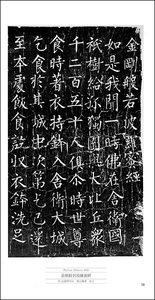 金剛般若波羅蜜經
如是我聞一時佛在舍衛國
祇樹給孤獨園與大比丘衆
千二百五十人俱尒時世尊
食時著衣持鉢入舍衛大城
乞食於其城中次第乞已還
至本處飯食訖收衣鉢洗足